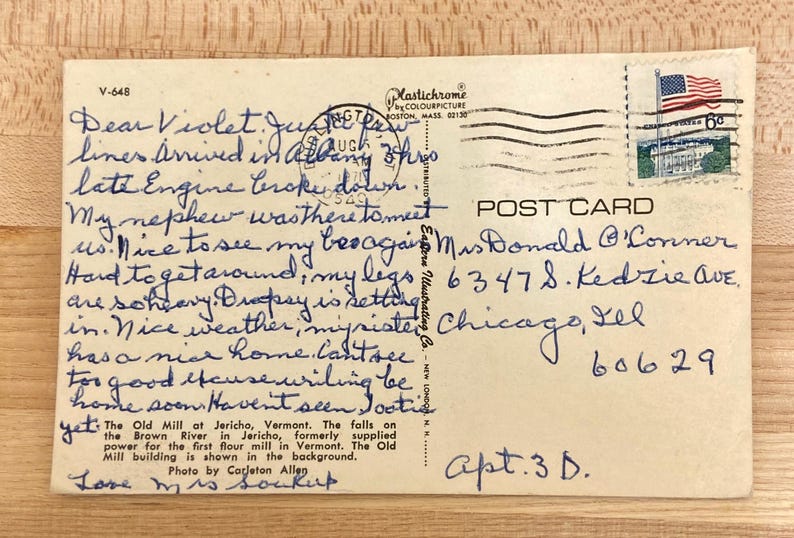 V-648
Plastichrome®
by COLOURPICTURE
BOSTON, MASS. 02130
BURLINGTON
AUG
AM
1971
UNITED STATES 6c
POST CARD
Dear Violet. Just a few
lines Arrived in Albany 3 hrs
late Engine broke down.
My nephew was there to meet
us. Nice to see my bro again
Hard to get around, my legs
are so heavy. Dropsy is setting
in. Nice weather, my sister
has a nice home. Cant see
too good excuse writing be
home soon. Havent seen Tootie
yet.
Love Mrs Soukup
DISTRIBUTED BY Eastern Illustrating Co. – NEW LONDON, N. H.
Mrs Donald O'Conner
6347 S. Kedzie Ave.
Chicago, Ill
60629
Apt. 3D.
The Old Mill at Jericho, Vermont. The falls on
the Brown River in Jericho, formerly supplied
power for the first flour mill in Vermont. The Old
Mill building is shown in the background.
Photo by Carleton Allen